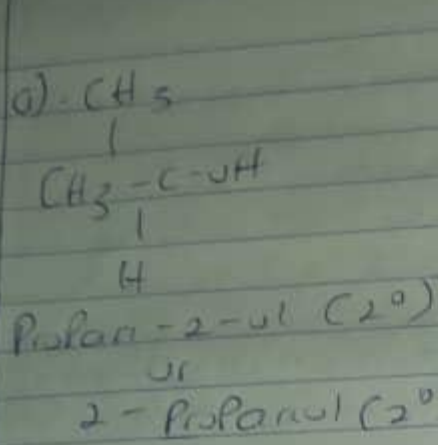 a). CH3
|
CH3-C-OH
|
H
Propan-2-ol (2°)
or
2-Propanol (2°